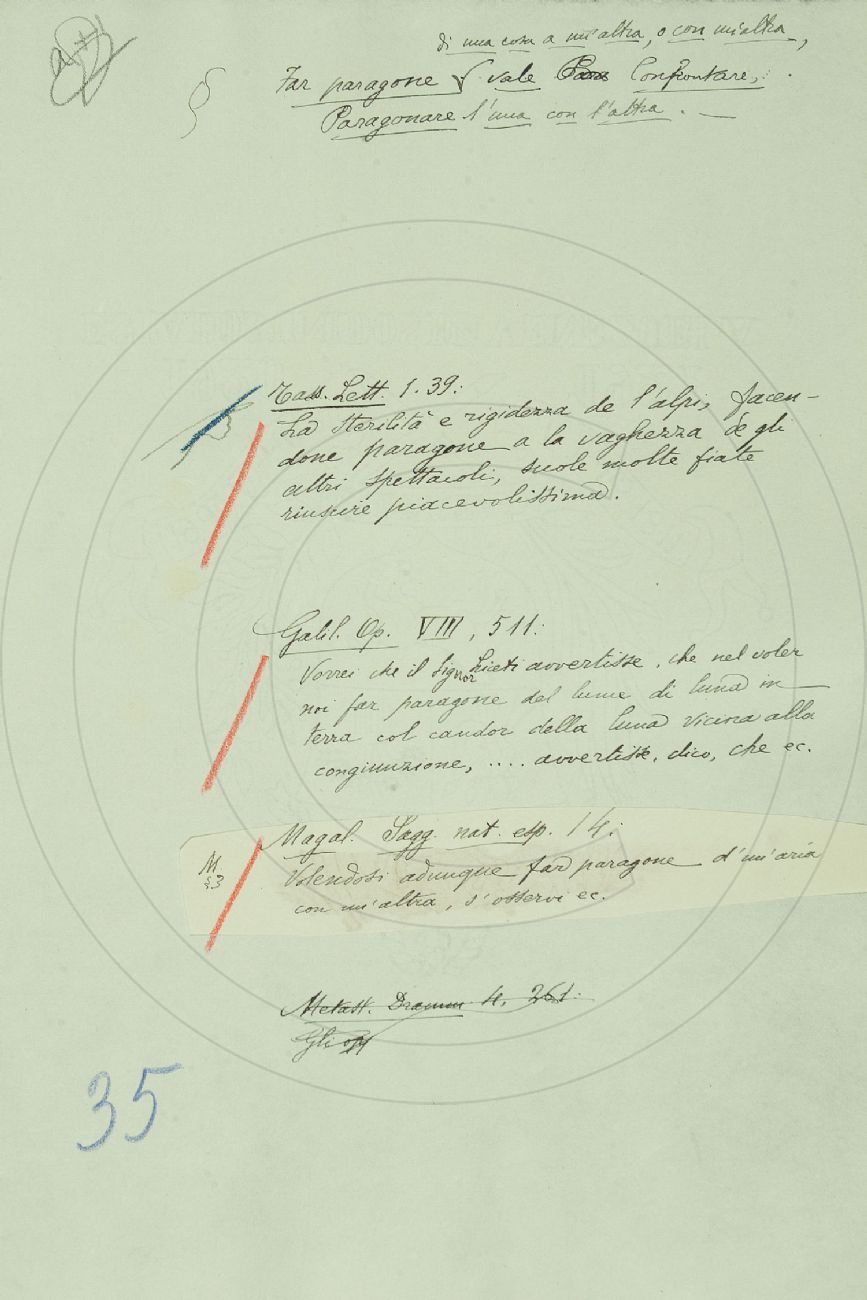 di una cosa a un'altra, o con un'altra,
§ Far paragone vale Confrontare,
Paragonare l'una con l'altra. —
Tass. Lett. 1. 39:
La sterilità e rigidezza de l'alpi, facen-
done paragone a la vaghezza de gli
altri spettacoli, suole molte fiate
riuscire piacevolissima.
Galil. Op. VIII, 511:
Vorrei che il Signor Liceti avvertisse, che nel voler
noi far paragone del lume di luna in
terra col candor della luna vicina alla
congiunzione, .... avvertisse, dico, che ec.
Magal. Sagg. nat. esp. 14:
M
§3
Volendosi adunque far paragone d'un'aria
con un'altra, s'osservi ec.
Metast. Dramm. 4, 261:
Gli
35